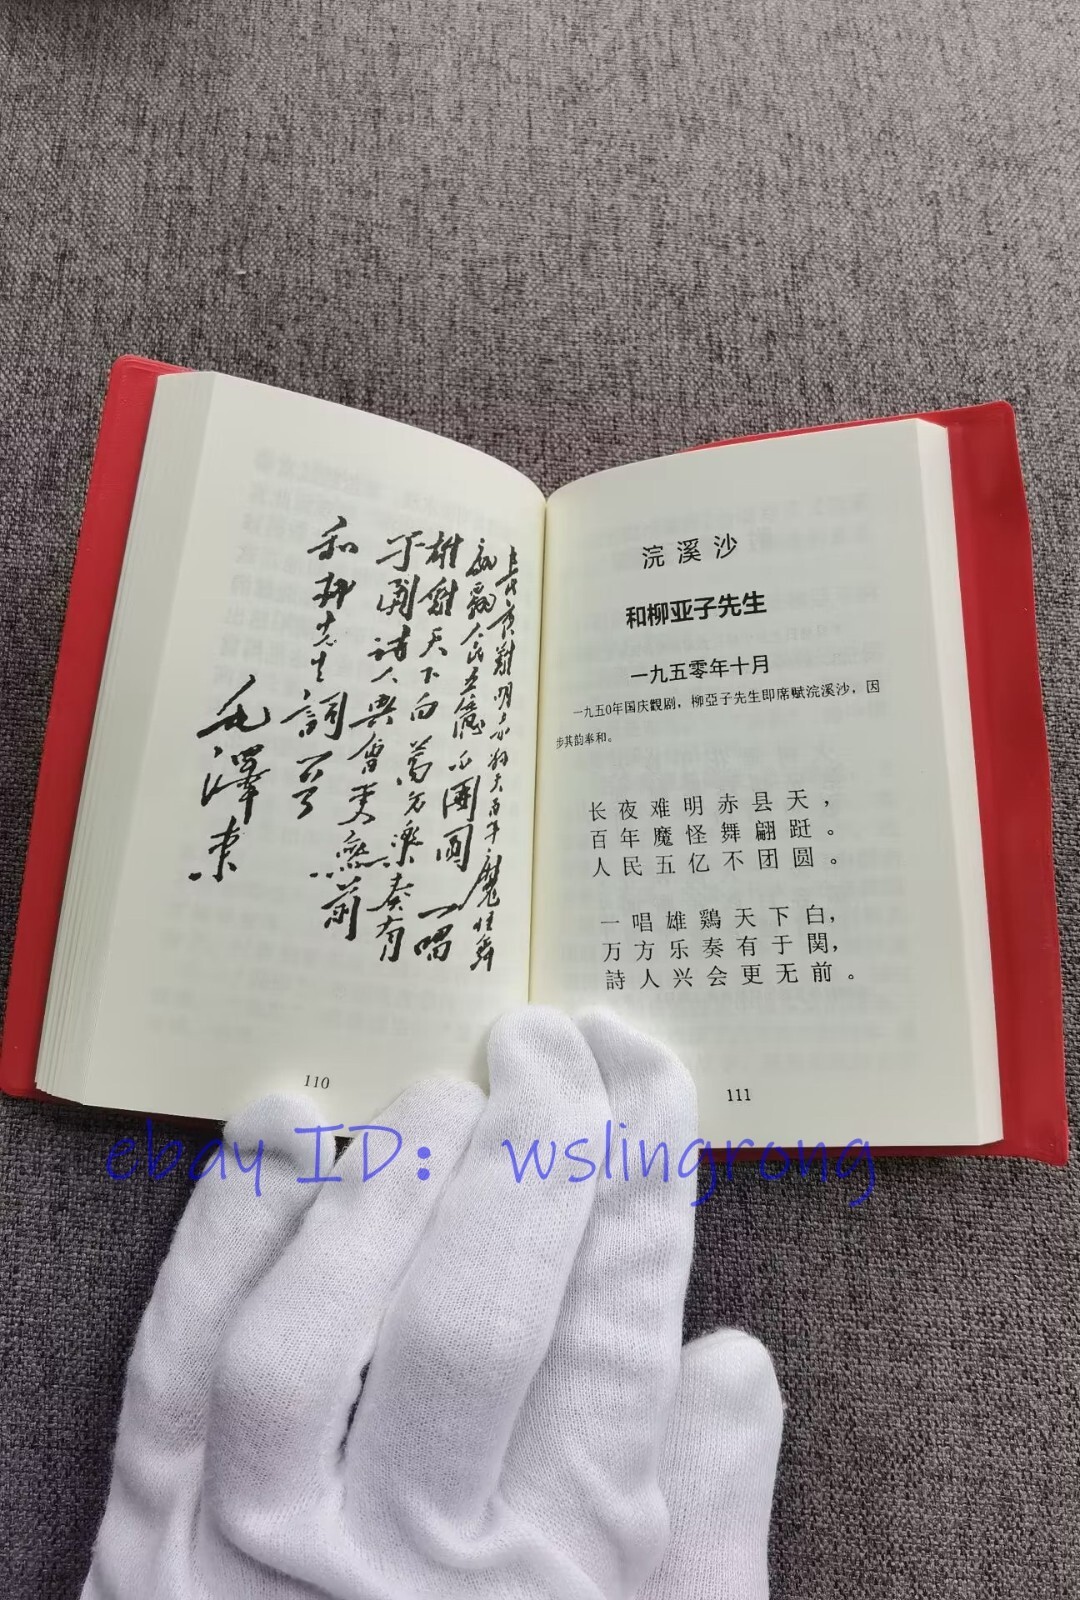 長夜難明赤縣天百年魔怪舞
翩翩人民五億不團圓一唱
雄雞天下白萬方樂奏有
于闐詩人興會更無前
和柳先生詞
毛澤東
110
浣溪沙
和柳亚子先生
一九五零年十月
一九五0年国庆觀剧，柳亞子先生即席赋浣溪沙，因
步其韵奉和。
长夜难明赤县天，
百年魔怪舞翩跹。
人民五亿不团圆。
一唱雄鶏天下白，
万方乐奏有于関，
詩人兴会更无前。
111
ebay ID： wslingrong